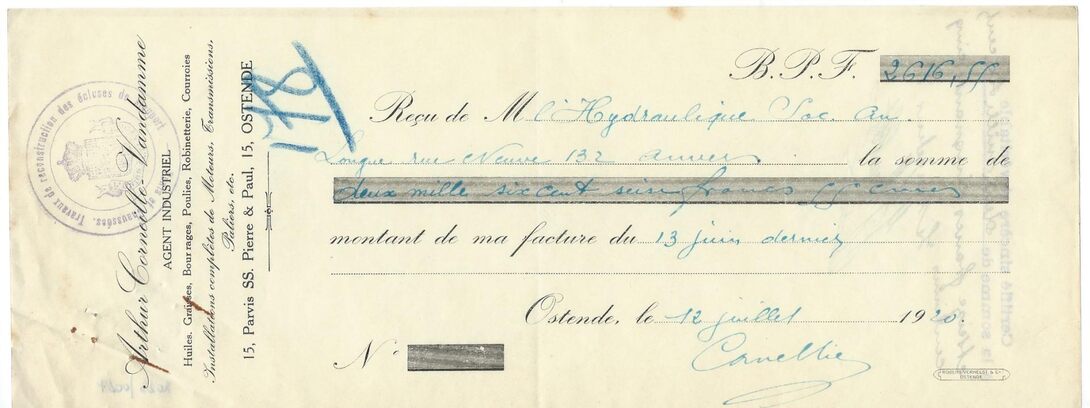 Arthur Corneille-Vandamme
AGENT INDUSTRIEL
Huiles, Graisses, Bourrages, Poulies, Robinetterie, Courroies
Installations complètes de Moteurs, Transmissions,
Paliers, etc.
15, Parvis SS. Pierre & Paul, 15, OSTENDE
Travaux de reconstruction des écluses de
178
B. P. F. 2616,55
Reçu de M l'Hydraulique Soc. An.
Longue rue Neuve 132 Anvers la somme de
deux mille six cent seize francs 55 cmes
montant de ma facture du 13 juin dernier
Ostende, le 12 juillet 1920.
Corneille
N°
OSTENDE